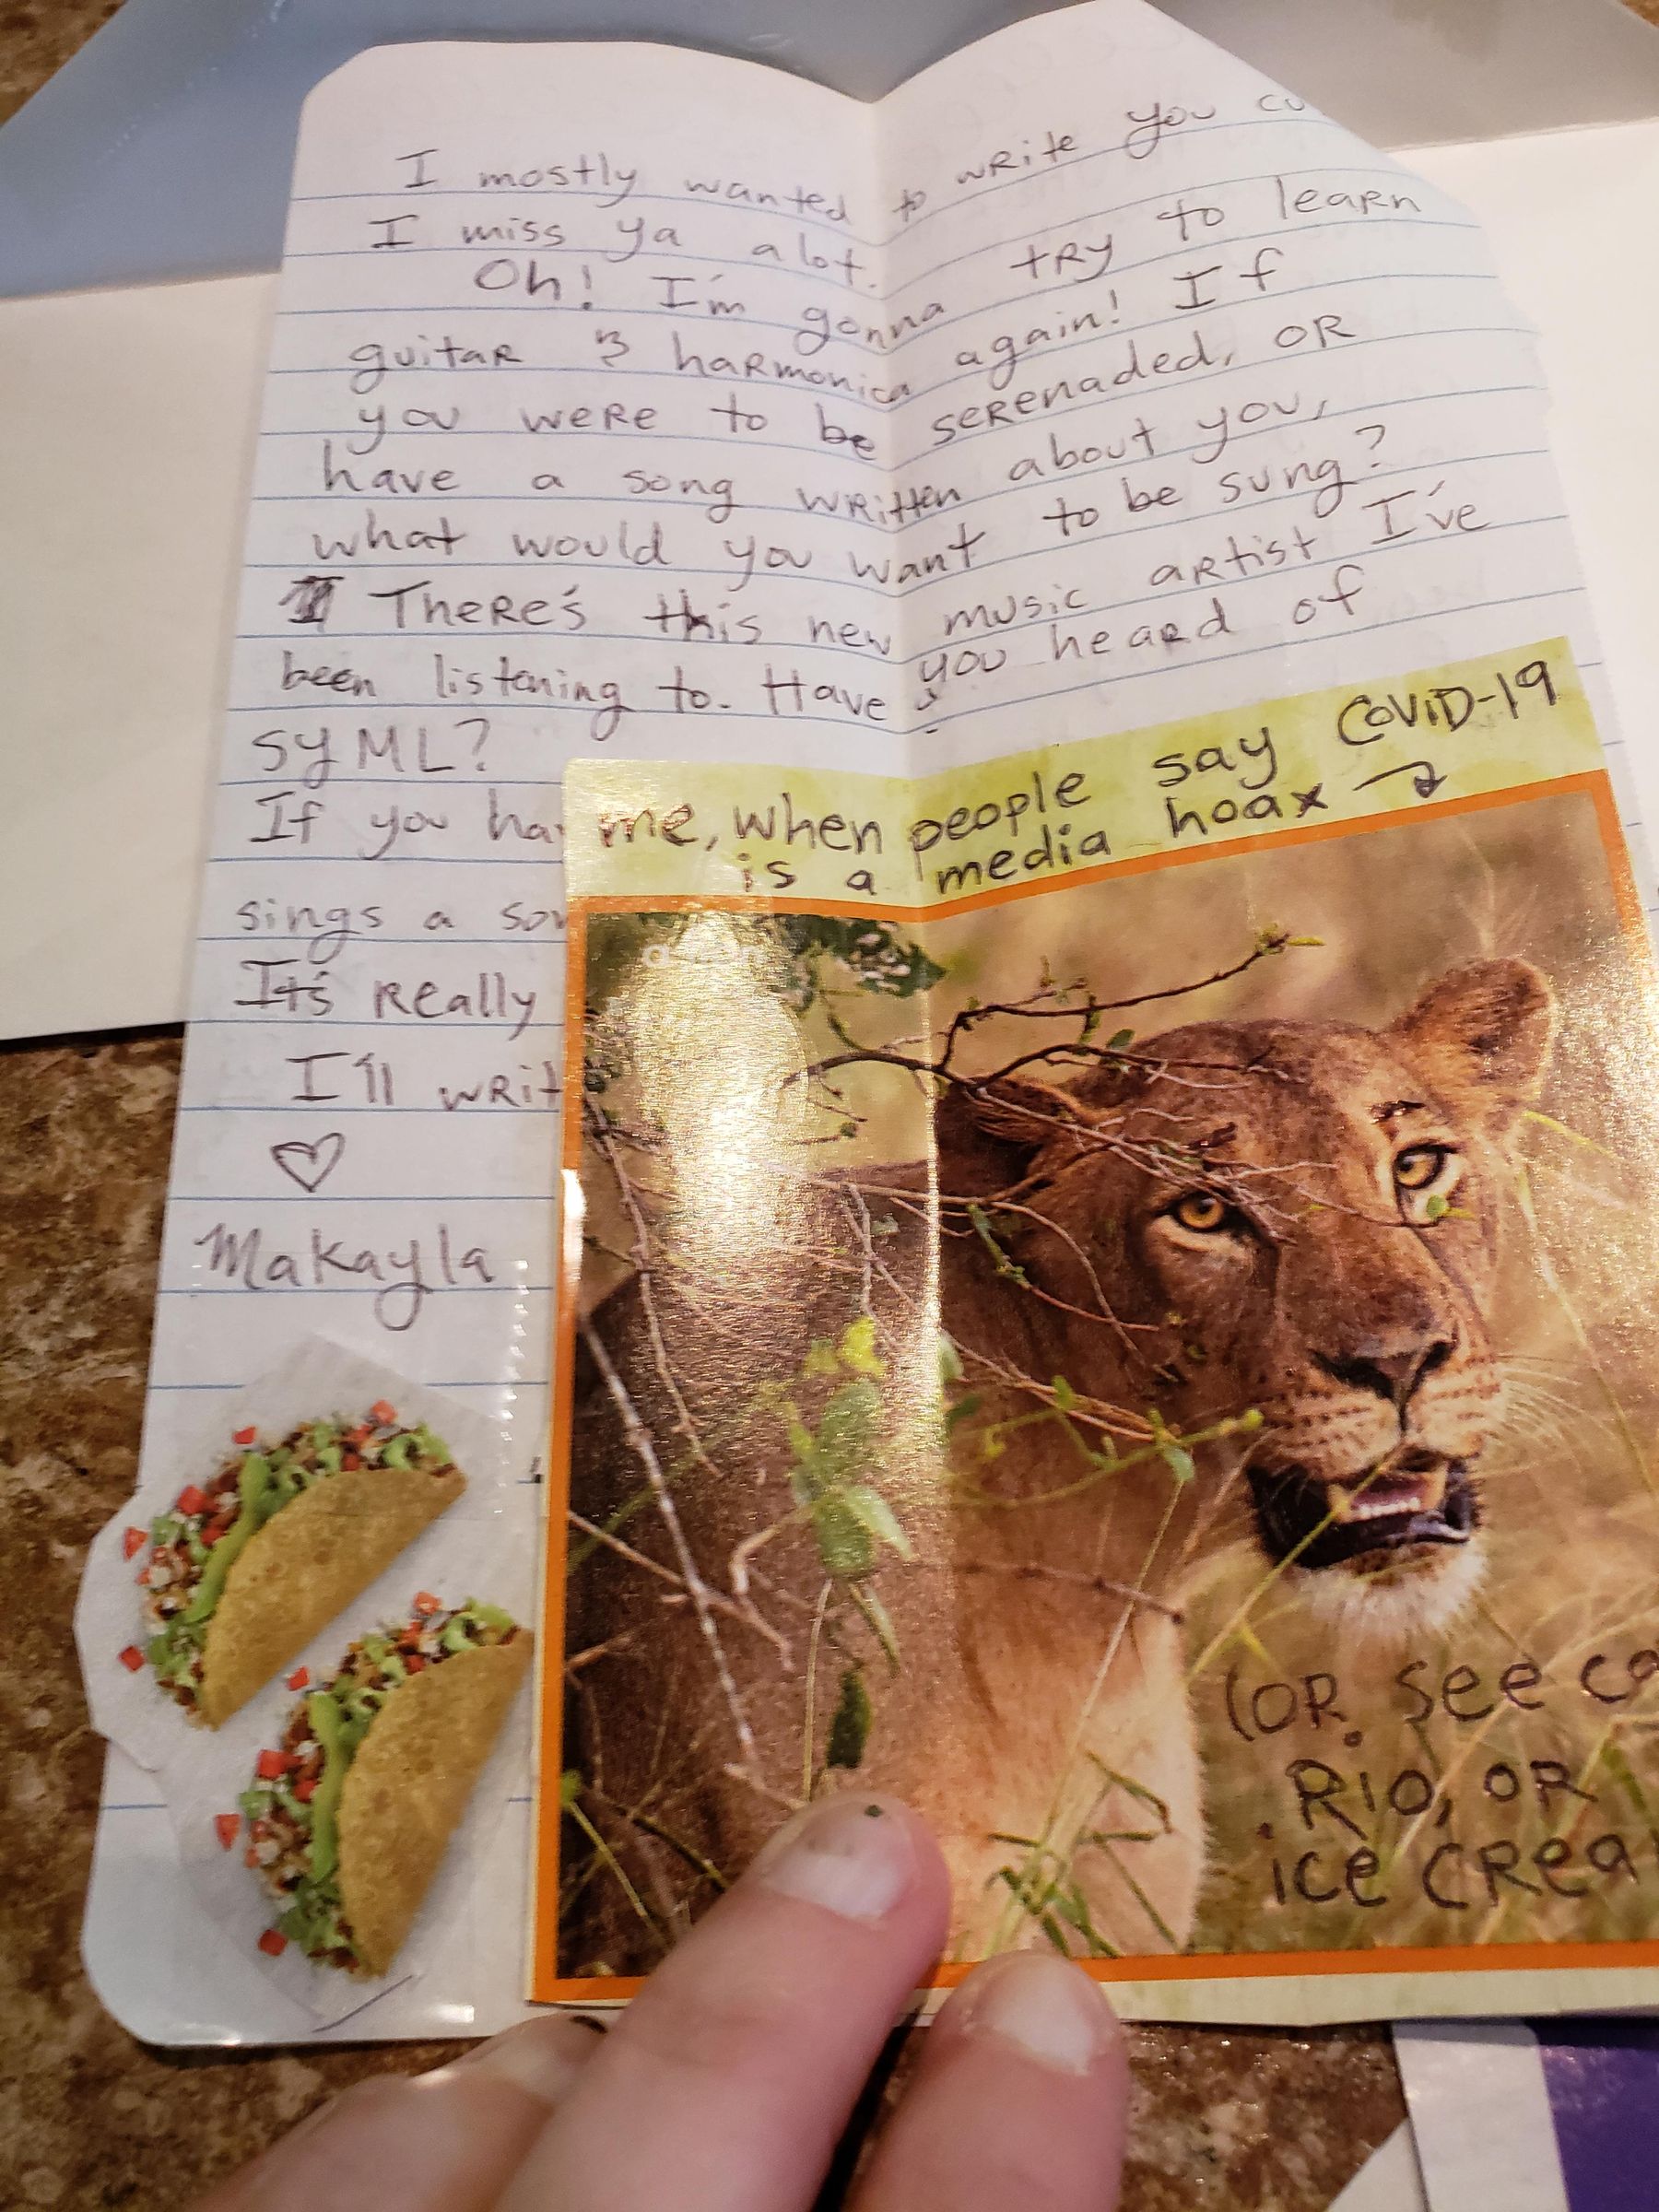 I mostly wanted to write you
I miss ya alot.
Oh! I'm gonna try to learn
guitar & harmonica again! If
you were to be serenaded, or
have a song written about you,
what would you want to be sung?
There's this new music artist I've
been listening to. Have you heard of
SYML?
If you
sings a
It's really
I'll
♡
Makayla
me, when people say COVID-19
is a media hoax →
(or see
Rio, or
ice